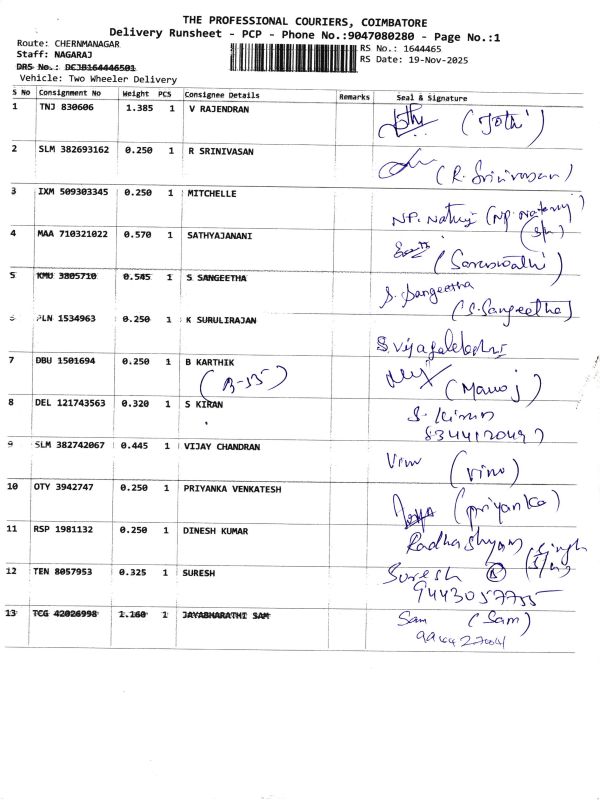 THE PROFESSIONAL COURIERS, COIMBATORE
Delivery Runsheet - PCP - Phone No.:9047080280 - Page No.:1
Route: CHERNMANAGAR
RS No.: 1644465
Staff: NAGARAJ
RS Date: 19-Nov-2025
DRS No.: DCJB164446501
Vehicle: Two Wheeler Delivery
S No Consignment No Weight PCS Consignee Details Remarks Seal & Signature
1 TNJ 830606 1.385 1 V RAJENDRAN (Jothi)
2 SLM 382693162 0.250 1 R SRINIVASAN (R. Srinivasan)
3 IXM 509303345 0.250 1 MITCHELLE
4 MAA 710321022 0.570 1 SATHYAJANANI (Saraswathi)
5 KMU 3805710 0.545 1 S SANGEETHA S. Sangeetha
(S.Sangeetha)
6 PLN 1534963 0.250 1 K SURULIRAJAN
7 DBU 1501694 0.250 1 B KARTHIK (Manoj)
(B-55)
8 DEL 121743563 0.320 1 S KIRAN S. Kiran
9 SLM 382742067 0.445 1 VIJAY CHANDRAN Vino (vino)
10 OTY 3942747 0.250 1 PRIYANKA VENKATESH (priyanka)
11 RSP 1981132 0.250 1 DINESH KUMAR Radhashyam Singh
12 TEN 8057953 0.325 1 SURESH Suresh
9443057755
13 TCG 42026998 1.160 1 JAYABHARATHI SAM Sam (Sam)